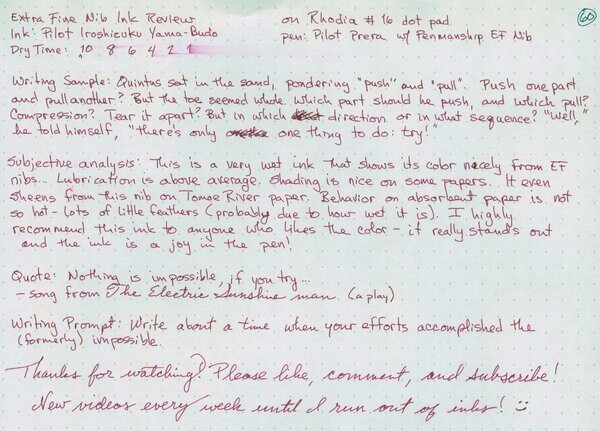 Extra Fine Nib Ink Review on Rhodia #16 dot pad 60
Ink: Pilot Iroshizuku Yama-Budo pen: Pilot Prera w/ Penmanship EF Nib
Dry Time: 10 8 6 4 2 1
Writing Sample: Quintus sat in the sand, pondering "push" and "pull". Push one part
and pull another? But the toe seemed whole. Which part should he push, and which pull?
Compression? Tear it apart? But in which direction or in what sequence? "Well,"
he told himself, "there's only one thing to do: try!"
Subjective analysis: This is a very wet ink that shows its color nicely from EF
nibs... Lubrication is above average. Shading is nice on some papers. It even
sheens from this nib on Tomoe River paper. Behavior on absorbent paper is not
so hot - lots of little feathers (probably due to how wet it is). I highly
recommend this ink to anyone who likes the color - it really stands out
and the ink is a joy in the pen!
Quote: Nothing is impossible, if you try...
- song from The Electric Sunshine man (a play)
Writing Prompt: Write about a time when your efforts accomplished the
(formerly) impossible.
Thanks for watching! Please like, comment, and subscribe!
New videos every week until I run out of inks!